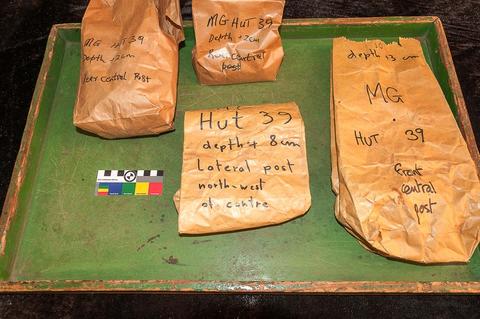 MG HUT 39
Depth +2cm
Central Post
MG HUT 39
Depth +2cm
central
post
Hut 39
depth + 8cm
Lateral post
north-west
of centre
depth +3 cm
MG
HUT 39
Front
central
post